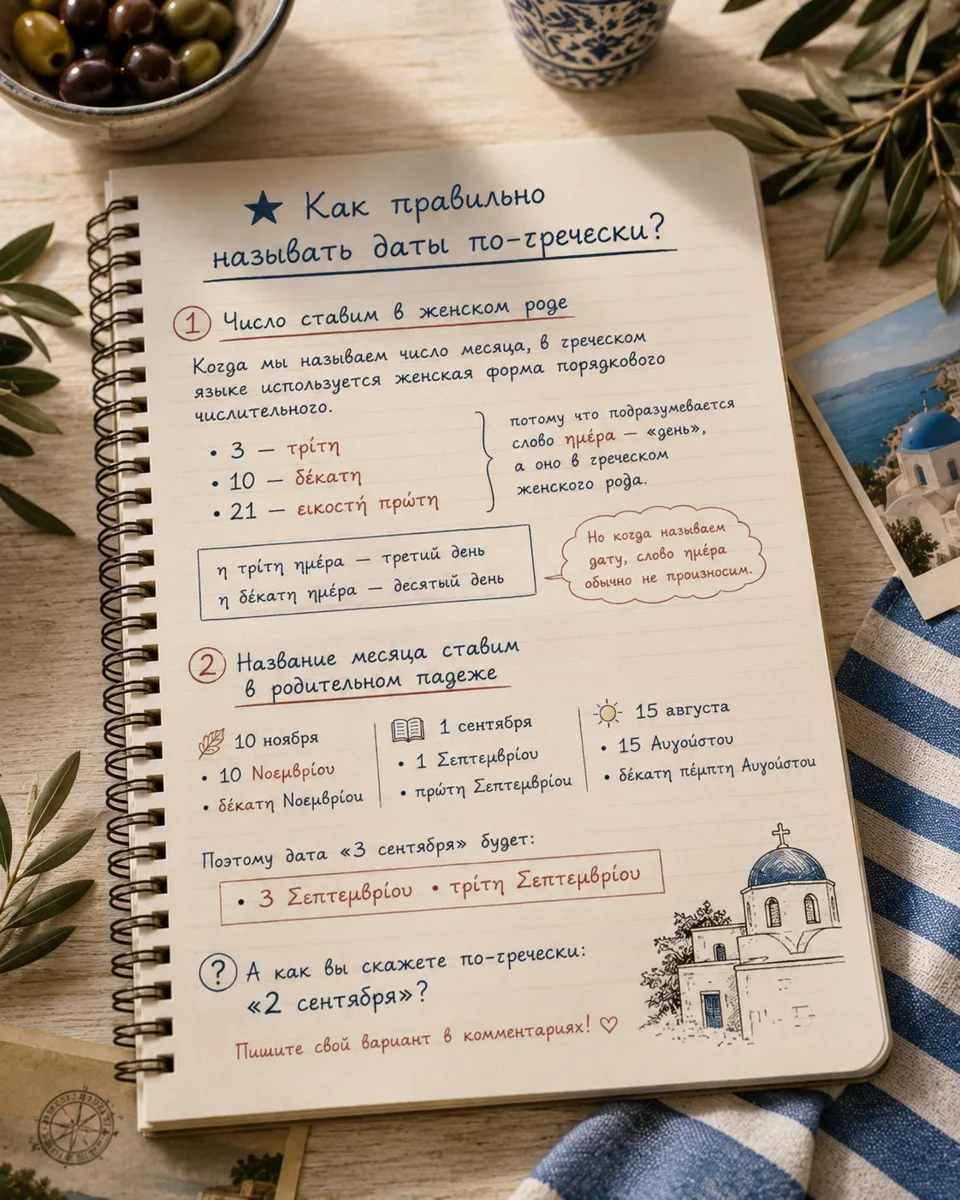 ★ Как правильно
называть даты по-гречески?
1 Число ставим в женском роде
Когда мы называем число месяца, в греческом
языке используется женская форма порядкового
числительного.
• 3 — τρίτη
• 10 — δέκατη
• 21 — εικοστή πρώτη
потому что подразумевается
слово ημέρα — «день»,
а оно в греческом
женского рода.
η τρίτη ημέρα — третий день
η δέκατη ημέρα — десятый день
Но когда называем
дату, слово ημέρα
обычно не произносим.
2 Название месяца ставим
в родительном падеже
10 ноября
• 10 Νοεμβρίου
• δέκατη Νοεμβρίου
1 сентября
• 1 Σεπτεμβρίου
• πρώτη Σεπτεμβρίου
15 августа
• 15 Αυγούστου
• δέκατη πέμπτη Αυγούστου
Поэтому дата «3 сентября» будет:
• 3 Σεπτεμβρίου • τρίτη Σεπτεμβρίου
? А как вы скажете по-гречески:
«2 сентября»?
Пишите свой вариант в комментариях! ♡